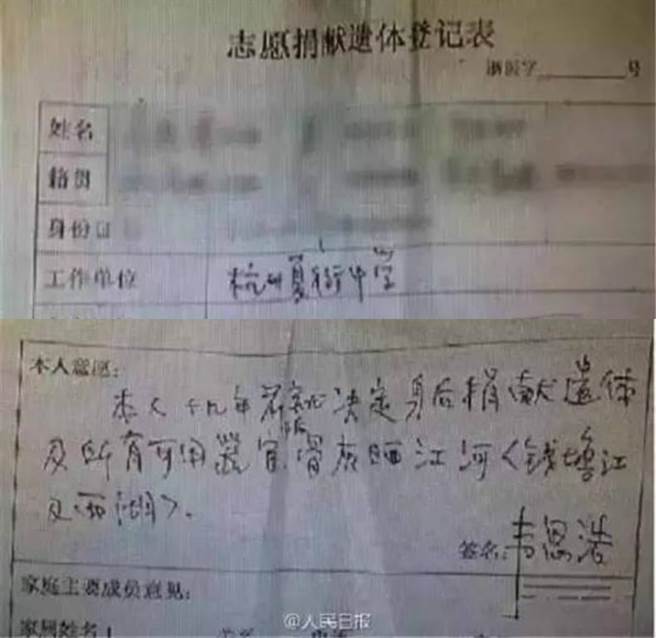 志愿捐献遗体登记表
浙医字______号
姓名
籍贯
身份证
工作单位 杭州夏衍中学
本人意愿:
本人十几年前就决定身后捐献遗体
及所有可用器官,骨灰洒江河<钱塘江
及西湖>.
签名:韦思浩
家庭主要成员意见:
家属姓名
@人民日报